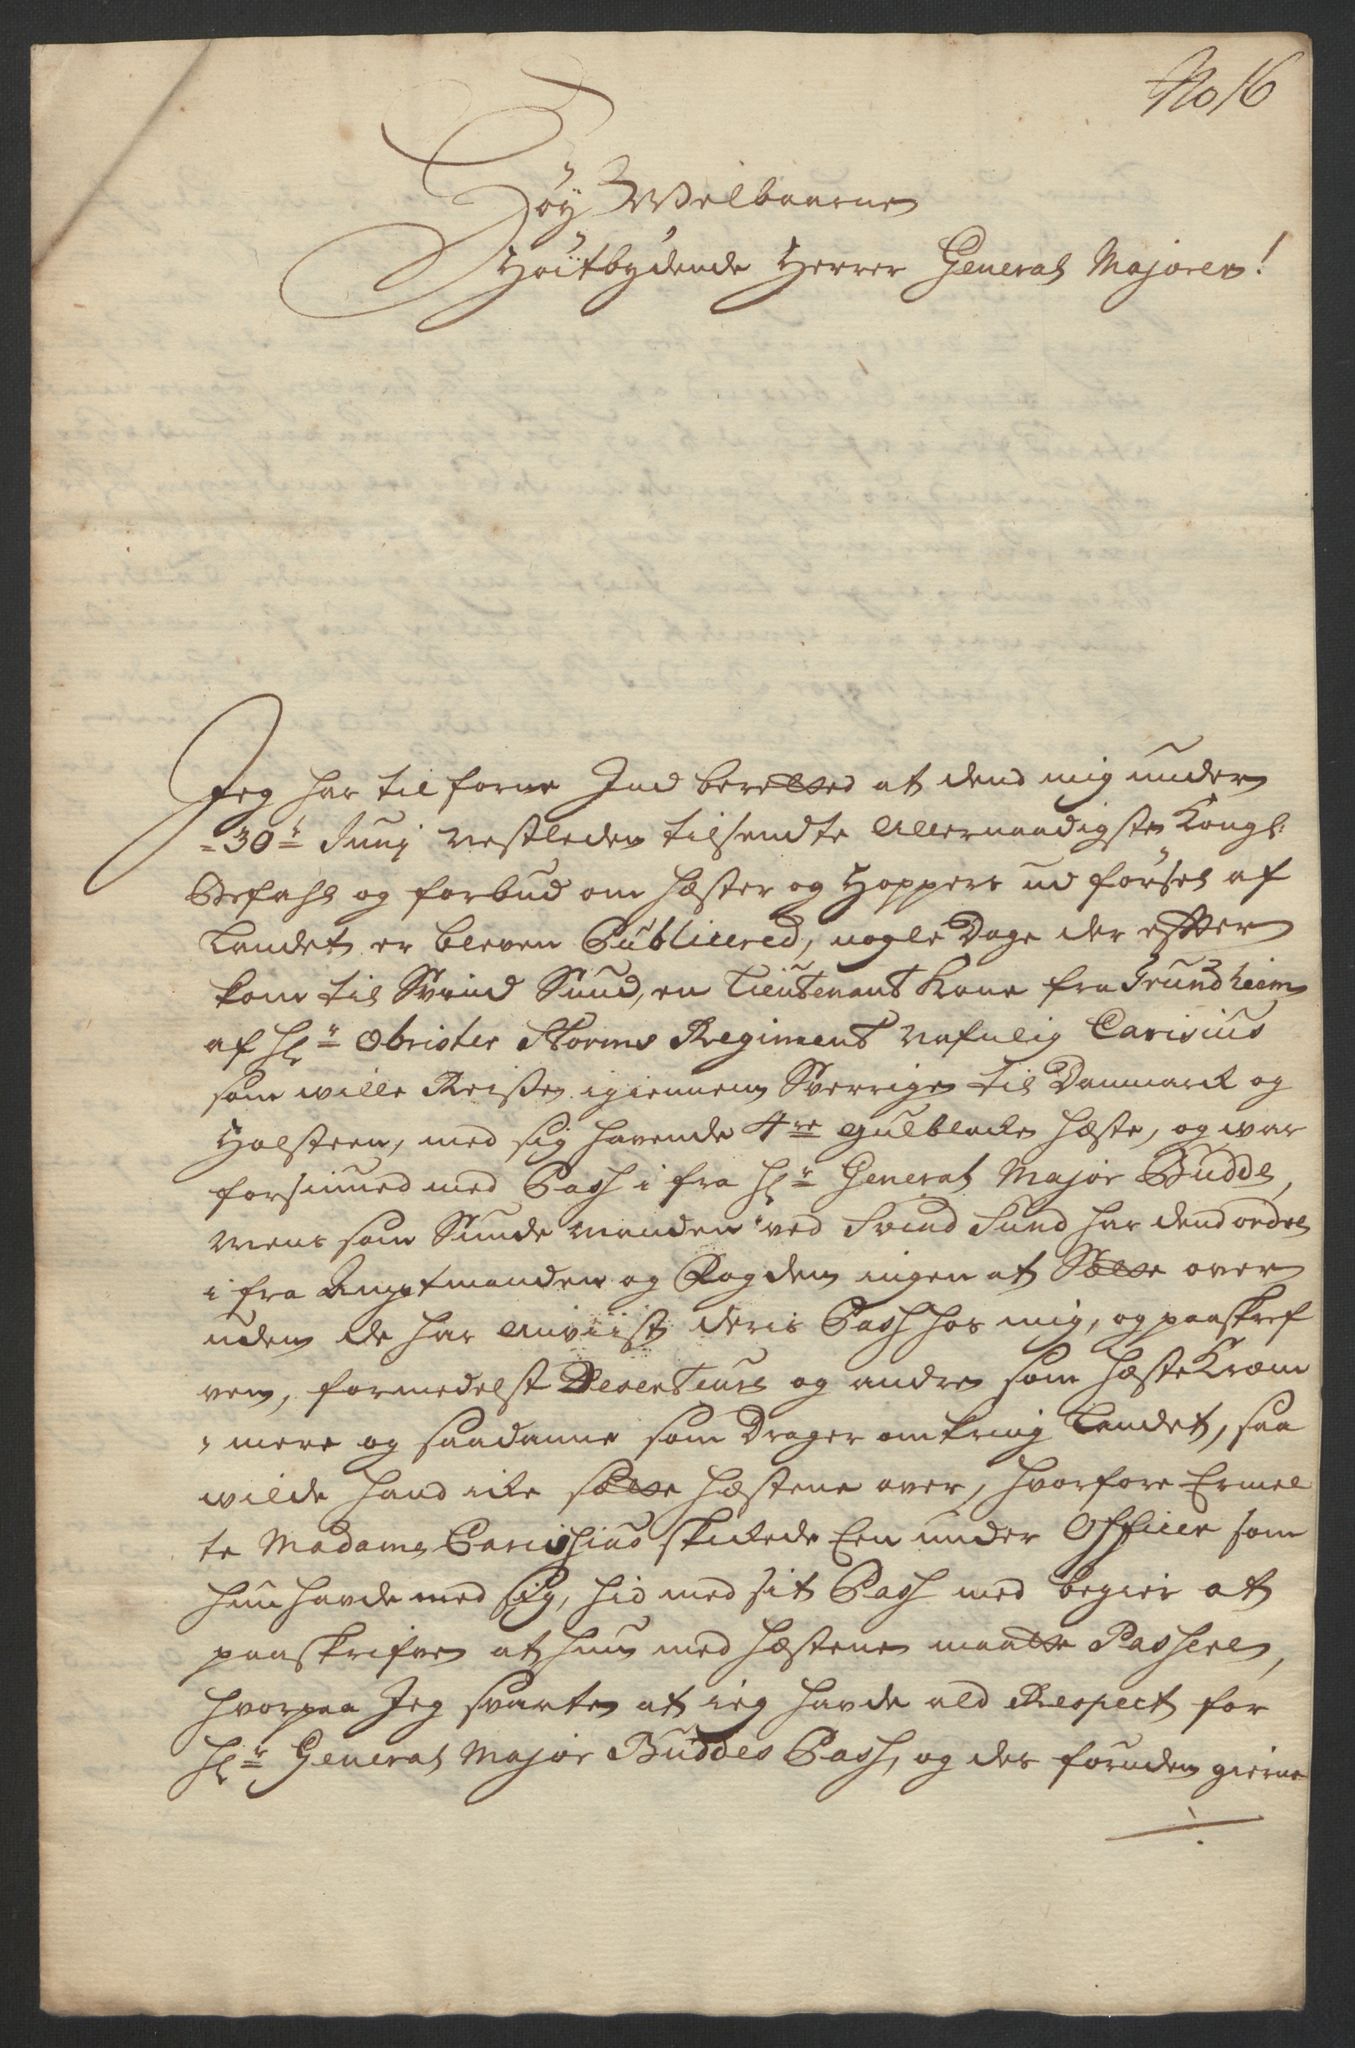 No 16
Höy Welbaarne
Höitbydende Herrer General Majoren!
Jeg har til forne Ind berætted at dend mig under
30te Junij nestleden tilsendte Allernaadigste Kongl:
Befahl og forbud om hæster og Hoppers ud försel af
Landet er bleven Publicered, nogle Dage der effter
kom til Svind Sund, en Lieutenant Kone fra Trundheim
af Hr Obrister Storms Regiment nafnlig Carisius
som wille Reise igiennem Sverrige til Danmarck og
Holsteen, med sig havende 4re gulblacke hæste, og war
forsiuned med Pass i fra Hr General Major Budde,
Mens som Sunde manden ved Svind Sund har dend ordre
i fra Amptmanden og Fogden ingen at Sætte over
uden de har anviist deris Pass hos mig, og paaskref
ven, formedelst Deserteurs og andre som hæste Kræm
mere og saadanne som Drager omkring Landet, saa
wilde hand icke sætte hæstene over, hvorfore Ermel
te Madame Carisius skickede Een under Officer som
hun havde med sig, hid med sit Pass med begier at
paaskrifve at hun med hæstene maatte Passere,
hvorpaa Jeg svarte at ieg havde ald Respect for
Hr General Major Buddes Pass, og des foruden gierne